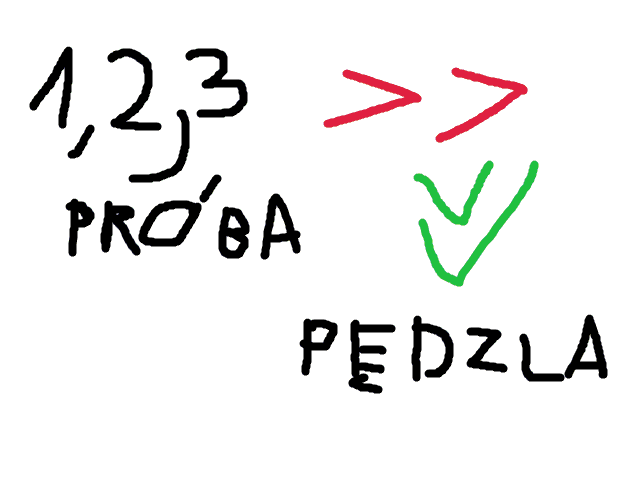 1,2,3 >>
PRÓBA
PĘDZLA